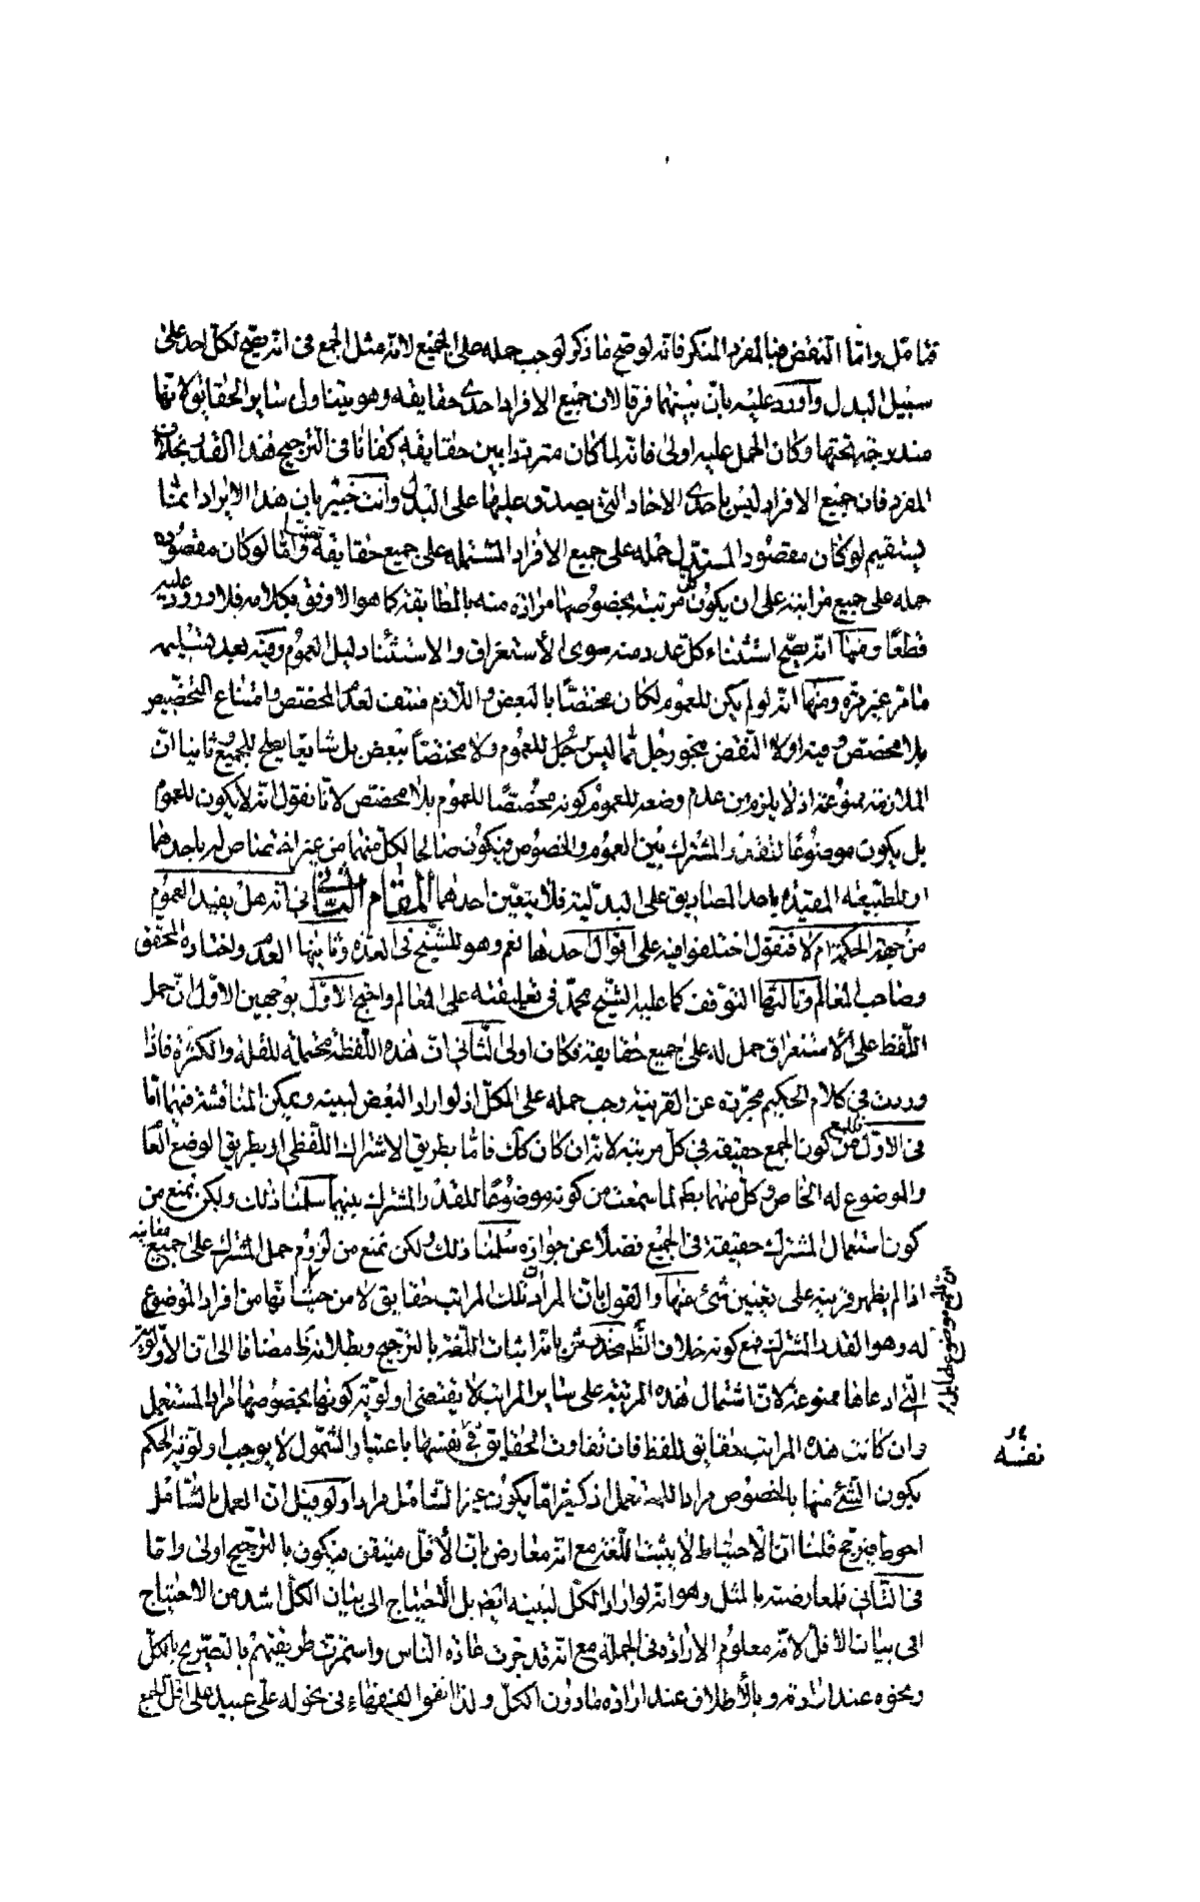 فتامل واما النقض فبالمفرد المنكر فانه لو صح ما ذكر لوجب حمله على الجميع لانه مثل الجمع فى انه يصح لكل احد على
سبيل البدل وأورد عليه بان بينهما فرقا لان جميع الافراد احدى حقايقه وهو يتناول ساير الحقايق لانها
مندرجة تحتها وكان الحمل عليه اولى فانه لما كان مترددا بين حقايقه كفانا فى الترجيح هذا القدر بخلاف
المفرد فان جميع الافراد ليس باحدى الاحاد التى يصدق عليها على البدل وانت خبير بان هذا الايراد انما
يستقيم لو كان مقصود المستدل حمله على جميع الافراد المشتملة على جميع حقايقه واما لو كان مقصوده
حمله على جميع مراتبه على ان يكون كل مرتبة بخصوصها مرادة منه بالمطابقة كما هو الاوفق بكلامه فلا ورود عليه
قطعًا ومنها انه يصح استثناء كل عدد منه سوى الأستغراق والاستثناء دليل العموم وفيه بعد تسليمه
ما مر غير مرة ومنها انه لو لم يكن للعموم لكان مختصًا بالبعض واللازم منتف لعدم المخصص وامتناع التخصيص
بلا مخصص وفيه اولا النقض بنحو رجل مما ليس للعموم ولا مختصًا ببعض بل شايعا يصلح للجميع وثانيا ان
الملازمة ممنوعة اذ لا يلزم من عدم وضعه للعموم كونه مخصصًا للعموم بلا مخصص لانا نقول انه لا يكون للعموم
بل يكون موضوعًا للقدر المشترك بين العموم والخصوص فيكون صالحا لكل منهما من غير اختصاص له باحدهما
او للطبيعة المقيدة باحد المصاديق على البدلية فلا يتعين احدها المقام الثانى فى انه هل يفيد العموم
من جهة الحكمة ام لا فنقول اختلفوا فيه على اقوال احدها نعم وهو للشيخ فى العدة وثانيها العدم واختاره المحقق
وصاحب المعالم وثالثها التوقف كما عليه الشيخ محمد فى تعليقته على المعالم واحتج الأول بوجهين الاول ان حمل
اللفظ على الأستغراق حمل له على جميع حقايقه فكان اولى الثانى ان هذه اللفظة محتملة للقلة والكثرة فاذا
وردت فى كلام الحكيم مجردة عن القرينة وجب حمله على الكل اذ لو اراد البعض لبينه ويمكن المناقشة فيهما اما
فى الاول فمن كون الجمع حقيقة فى كل مرتبة لانه ان كان كك فاما بطريق الاشتراك اللفظى او بطريق الوضع العام
والموضوع له الخاص وكل منهما بط لما سمعت من كونه موضوعًا للقدر المشترك بينهما سلمنا ذلك ولكن نمنع من
كون استعمال المشترك حقيقة فى الجميع فضلا عن جوازه سلمنا ذلك ولكن نمنع من لزوم حمل المشترك على جميع معانيه
اذا لم يظهر قرينة على تعيين شئ منها والقول بان المراد ان تلك المراتب حقايق لا من حيث انها من افراد الموضوع
له وهو القدر المشترك فمع كونه خلاف الظ مخدوش بانه اثبات اللغة بالترجيح وبطلانه ظ مضافا الى ان الأولوية
التى ادعاها ممنوعة لان اشتمال هذه المرتبة على ساير المراتب لا يقتضى اولوية كونها بخصوصها مراد المستعمل
وان كانت هذه المراتب حقايق للفظ فان تفاوت الحقايق فى نفسها باعتبار الشمول لا يوجب اولوية الحكم
نفسه
بكون الشئ منها بالخصوص مرادا للمستعمل اذ كثيرا ما يكون غير الشامل مرادا ولو قيل ان العمل بالشامل
احوط فيرجح قلنا ان الاحتياط لا يثبت اللغة مع انه معارض بان الأقل متيقن فيكون بالترجيح اولى واما
فى الثانى فلمعارضته بالمثل وهو انه لو اراد الكل لبينه ايضا بل الاحتياج الى بيان الكل اشد من الاحتياج
الى بيان الاقل لانه معلوم الارادة فى الجملة مع انه قد جرت عادة الناس واستمرت طريقتهم بالتصريح بالكل
ونحوه عند ارادته وبالأطلاق عند ارادة ما دون الكل ولذا اتفق الفقهاء فى نحو له على عبيد على اقل الجمع